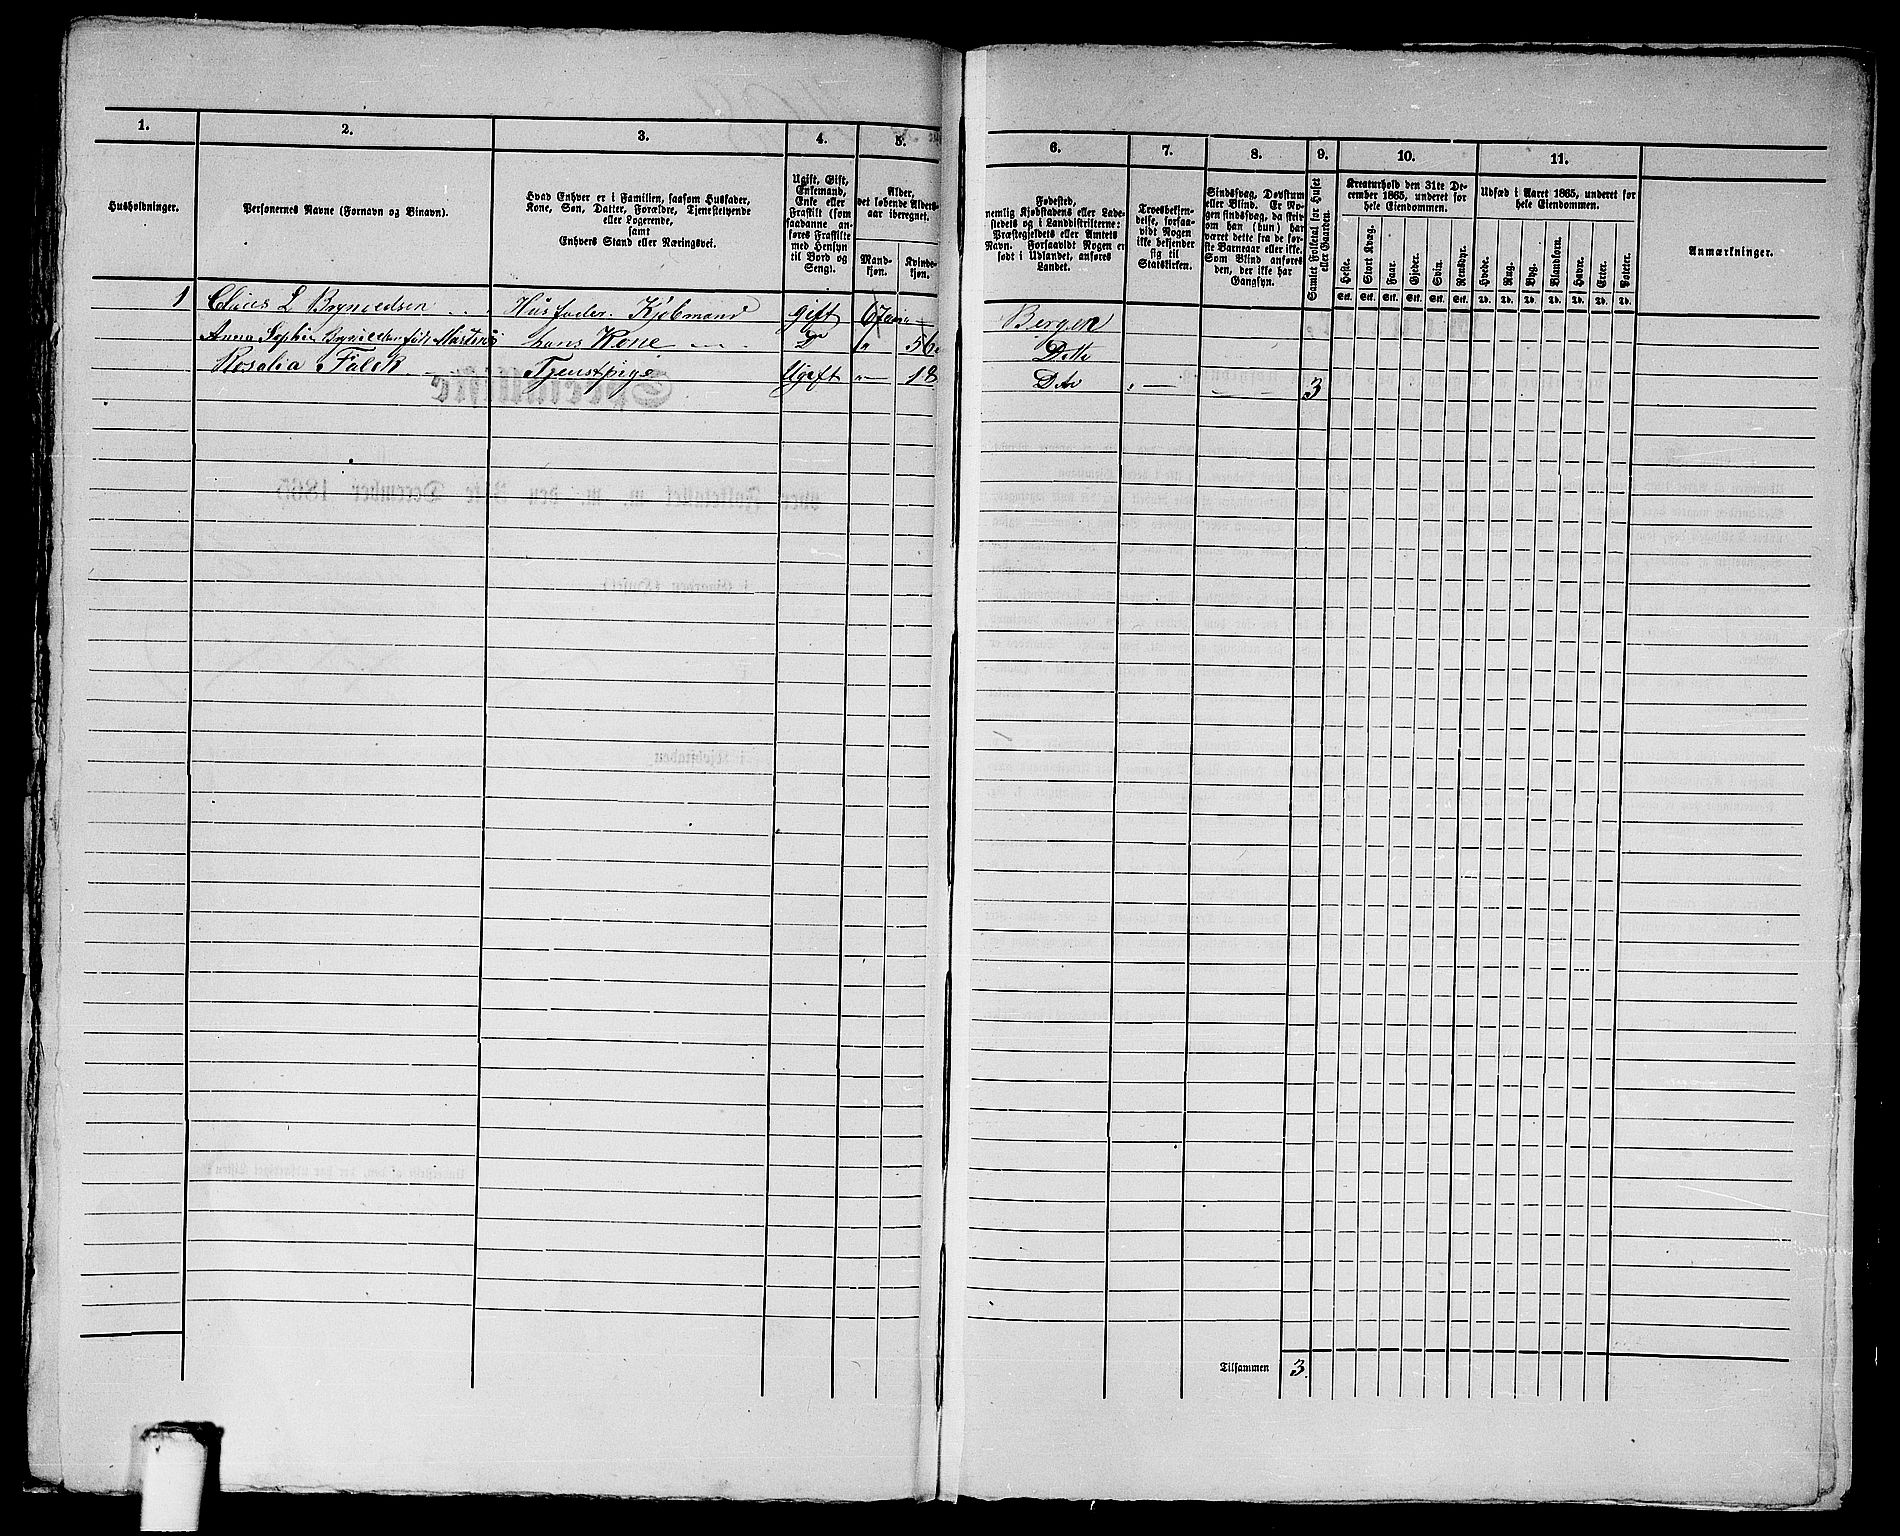 1. 2. 3. 4. 5. 6. 7. 8. 9. 10. 11.
Husholdninger.
Personernes Navne (Fornavn og Binavn).
Hvad Enhver er i Familien, saasom Husfader,
Kone, Søn, Datter, Forældre, Tjenestetyende
eller Logerende,
samt
Enhvers Stand eller Næringsvei.
Ugift, Gift,
Enkemand,
Enke eller
Fraskilt (som
saadanne an-
føres Fraskilte
med Hensyn
til Bord og
Seng).
Alder,
det løbende Alders-
aar iberegnet.
Mand-
kjøn.
Kvinde-
kjøn.
Fødested,
nemlig Kjøbstadens eller Lade-
stedets og i Landdistrikterne:
Præstegjeldets eller Amtets
Navn. Forsaavidt Nogen er
født i Udlandet, anføres
Landet.
Troesbekjen-
delse, forsaa-
vidt Nogen
ikke bekjender
sig til
Statskirken.
Sindssvag, Døvstum
eller Blind. Er No-
gen sindssvag, da skriv
om han (hun) har
været dette fra de før-
ste Barneaar eller ikke.
Som Blind anføres
den, der ikke har
Gangsyn.
Samlet Folketal for Huset
eller Gaarden.
Kreaturhold den 31te De-
cember 1865, underet for
hele Eiendommen.
Heste. Stort Kvæg. Faar. Gjeder. Svin. Rensdyr.
Stk. Stk. Stk. Stk. Stk. Stk.
Udsæd i Aaret 1865, underet for
hele Eiendommen.
Hvede. Rug. Byg. Blandkorn. Havre. Erter. Poteter.
Td. Td. Td. Td. Td. Td. Td.
Anmærkninger.
1 Claus L Bryn Husfader. Kjøbmand gift 67 " Bergen
Anna Sophie født hans Kone D " 56 Ditto
Rosalia Falck Tjenstpige Ugift " 18 Dito " 3
Tilsammen 3.